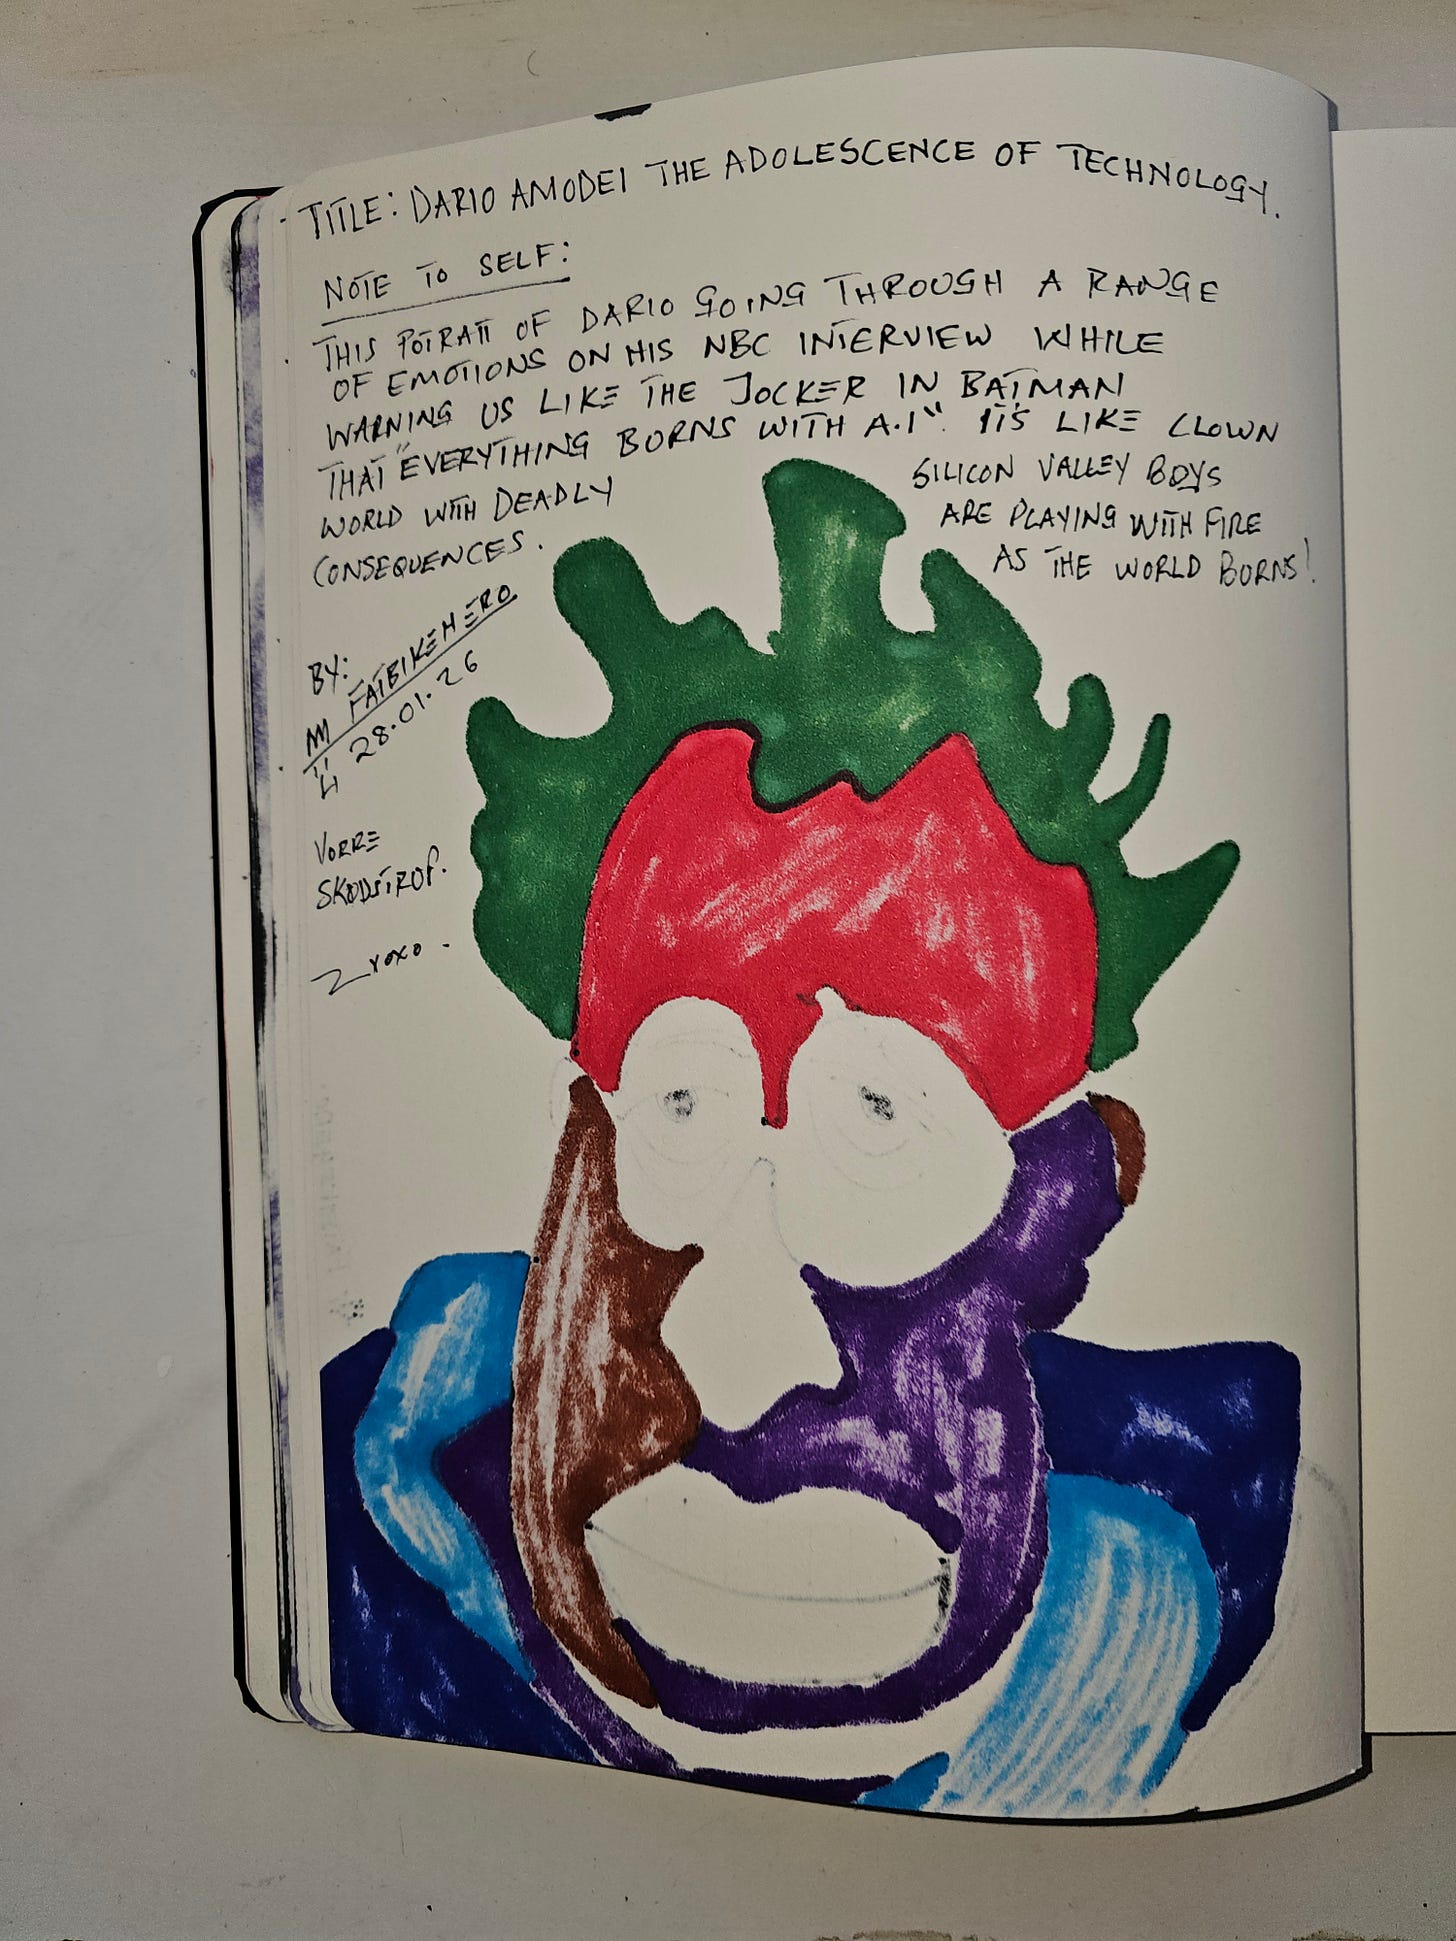 TITLE: DARIO AMODEI THE ADOLESCENCE OF TECHNOLOGY.
NOTE TO SELF:
THIS POTRATT OF DARIO GOING THROUGH A RANGE
OF EMOTIONS ON HIS NBC INTERVIEW WHILE
WARNING US LIKE THE JOCKER IN BATMAN
THAT "EVERYTHING BORNS WITH A.I". ITS LIKE CLOWN
WORLD WITH DEADLY
CONSEQUENCES.
SILICON VALLEY BOYS
ARE PLAYING WITH FIRE
AS THE WORLD BORNS!
BY:
FATBIKEHERO
28.01.26
VORRE
SKØDSTROP.
xoxo.